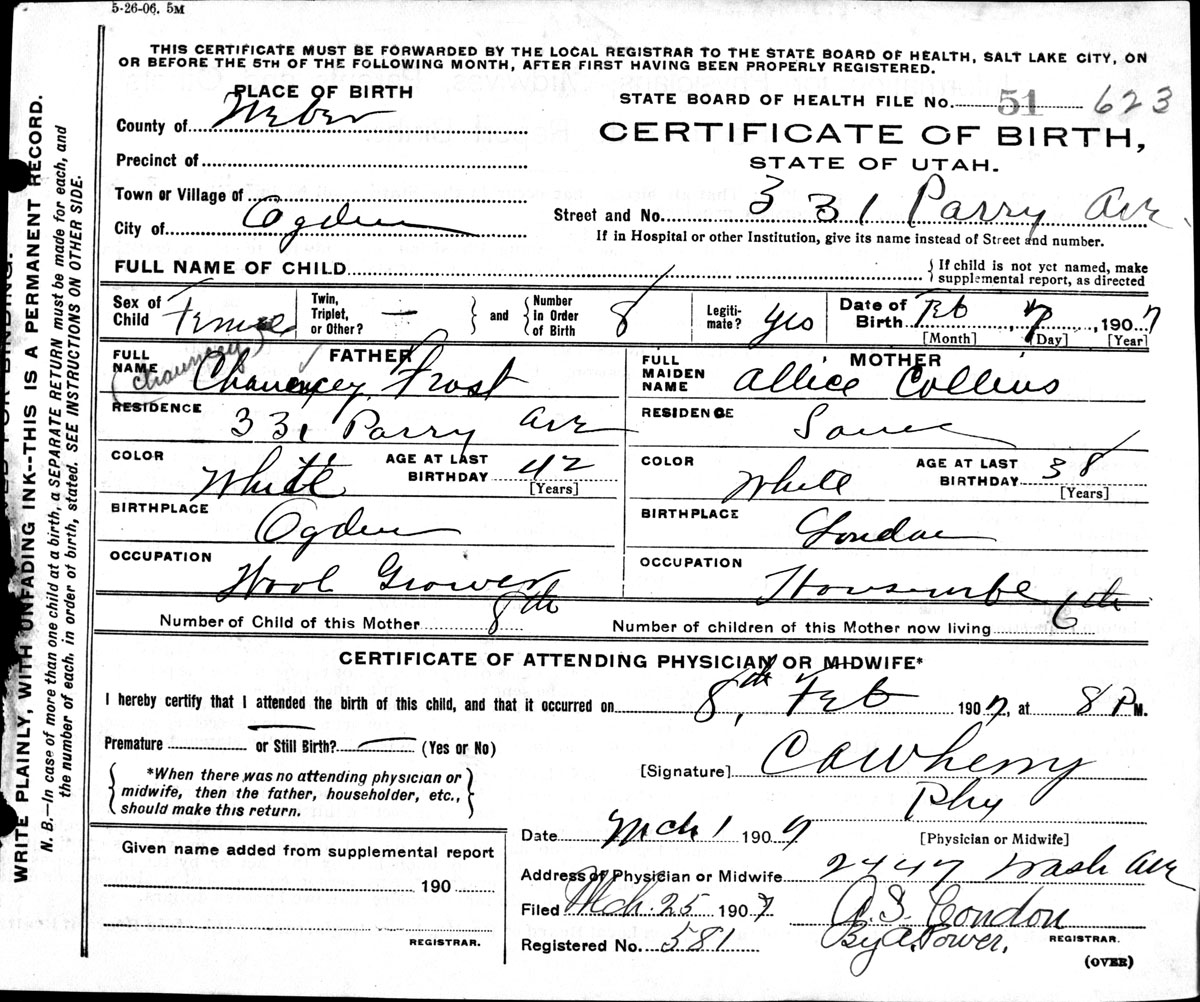 5-26-06. 5M
THIS CERTIFICATE MUST BE FORWARDED BY THE LOCAL REGISTRAR TO THE STATE BOARD OF HEALTH, SALT LAKE CITY, ON
OR BEFORE THE 5TH OF THE FOLLOWING MONTH, AFTER FIRST HAVING BEEN PROPERLY REGISTERED.
PLACE OF BIRTH
County of Weber
Precinct of
Town or Village of
City of Ogden
STATE BOARD OF HEALTH FILE No. 51 623
CERTIFICATE OF BIRTH,
STATE OF UTAH.
Street and No. 331 Parry Ave
If in Hospital or other Institution, give its name instead of Street and number.
FULL NAME OF CHILD
{ If child is not yet named, make
supplemental report, as directed
Sex of Child Female
Twin, Triplet, or Other? —
and
Number In Order of Birth 8
Legiti- mate? yes
Date of Birth Feb, 7, 1907
[Month] [Day] [Year]
FATHER
FULL NAME (Chauncey) Chauncey Frost
RESIDENCE 331 Parry Ave
COLOR White
AGE AT LAST BIRTHDAY 42
[Years]
BIRTHPLACE Ogden
OCCUPATION Wool Grower
MOTHER
FULL MAIDEN NAME Allice Collins
RESIDENCE Same
COLOR White
AGE AT LAST BIRTHDAY 38
[Years]
BIRTHPLACE London
OCCUPATION
Number of Child of this Mother 8th
Number of children of this Mother now living 6th
CERTIFICATE OF ATTENDING PHYSICIAN OR MIDWIFE*
I hereby certify that I attended the birth of this child, and that it occurred on 8th, Feb 1907, at 8 P M.
Premature — or Still Birth? — (Yes or No)
{ *When there was no attending physician or
midwife, then the father, householder, etc.,
should make this return. }
[Signature] C A Wherry
Phy
[Physician or Midwife]
Date Mch 1 1907
Address of Physician or Midwife 2447 Wash Ave
Filed Mch. 25 1907
A. S. Condon
By A. Power,
REGISTRAR.
Registered No. 581
(OVER)
Given name added from supplemental report
190
REGISTRAR.
WRITE PLAINLY, WITH UNFADING INK--THIS IS A PERMANENT RECORD.
N. B.—In case of more than one child at a birth, a SEPARATE RETURN must be made for each, and
the number of each, in order of birth, stated. SEE INSTRUCTIONS ON OTHER SIDE.